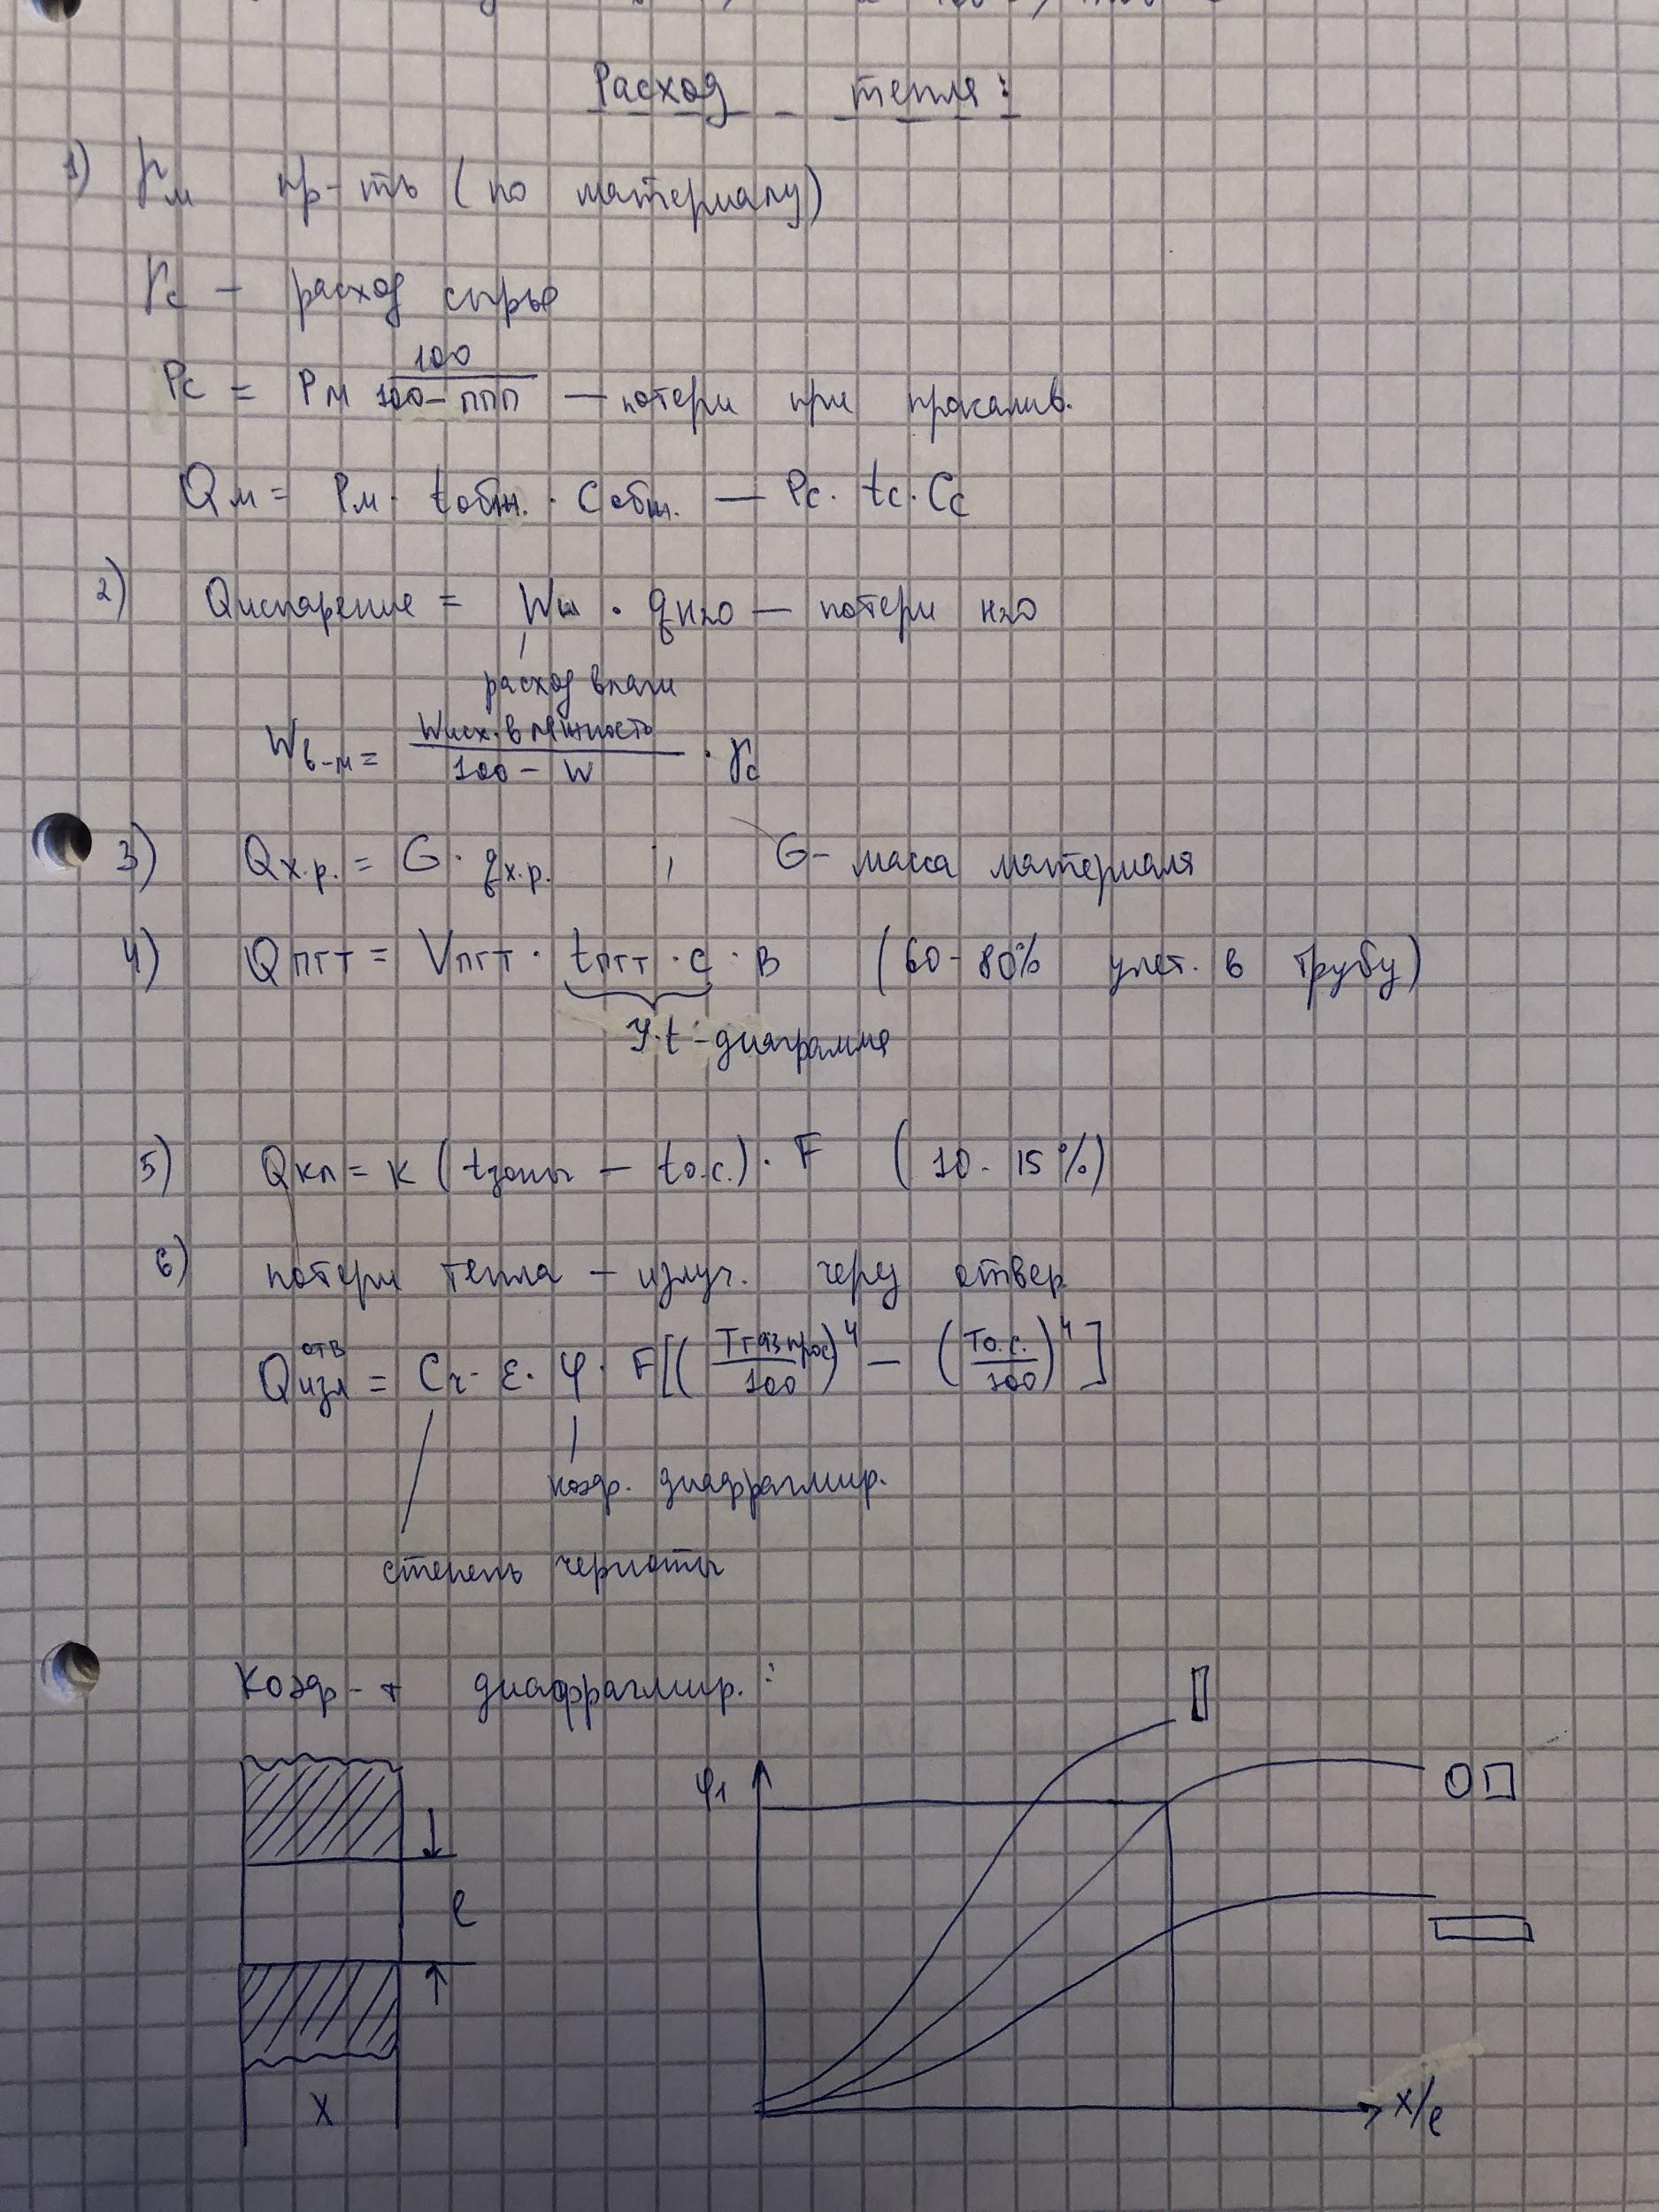 Расход тепла:
1) Pм пр-ть (по материалу)
Pc – расход сырья
100
Pc = Pм 100-ППП — потери при прокалив.
Qм = Pм · tобж. · Cобж. — Pc · tc · Cc
2) Qиспарение = Wш · qH2O — потери H2O
расход влаги
Wисх. влажность
Wв-м = 100 - W · Pc
3) Qх.р. = G · qх.р. , G - масса материала
4) Qпгт = Vпгт · tпгт · c · B (60-80% улет. в трубу)
t - диаграмма
5) Qкл = K (tзоны — tо.с.) · F (10-15%)
6) потери тепла – излуч. через отвер
отв Tгаз прос 4 Tо.с. 4
Qизл = Cч · ε · φ · F[( 100 ) — ( 100 ) ]
коэф. диафрагмир.
степень черноты
Коэф-т диафрагмир.:
φ1
l
X
X/l